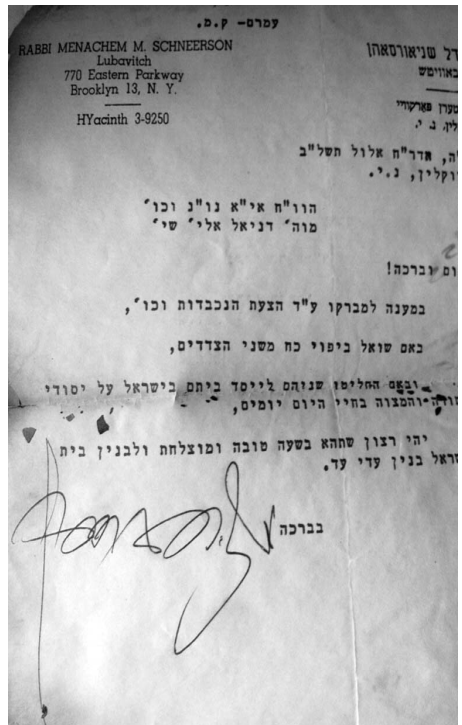 עמרם- ק.מ.
RABBI MENACHEM M. SCHNEERSON
Lubavitch
770 Eastern Parkway
Brooklyn 13, N. Y.
HYacinth 3-9250
דל שניאורסאהן
באוויטש
סטערן פארקוויי
קלין, נ. י.
ה, אדר"ח אלול תשל"ב
וקלין, נ.י.
הוו"ח אי"א נו"נ וכו'
מוה' דניאל אלי' שי'
ום וברכה!
במענה למברקו ע"ד הצעת הנכבדות וכו',
באם שואל ביפוי כח משני הצדדים,
ובאם החליטו שניהם לייסד ביתם בישראל על יסודי
תורה והמצוה בחיי היום יומים,
יהי רצון שתהא בשעה טובה ומוצלחת ולבנין בית
שראל בנין עדי עד.
בברכה